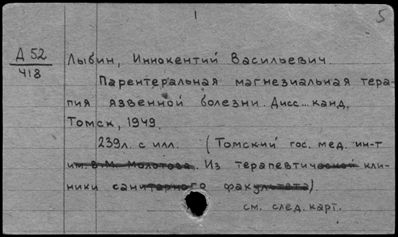 1
5
Д 52
418
Лыбин, Иннокентий Васильевич
Парентеральная магнезиальная тера-
пия язвенной болезни. Дисс... канд.
Томск, 1949.
239л. с илл. (Томский гос. мед. ин-т
им. В.М. Молотова. Из терапевтической кли-
ники санитарного факультета).
см. след. карт.